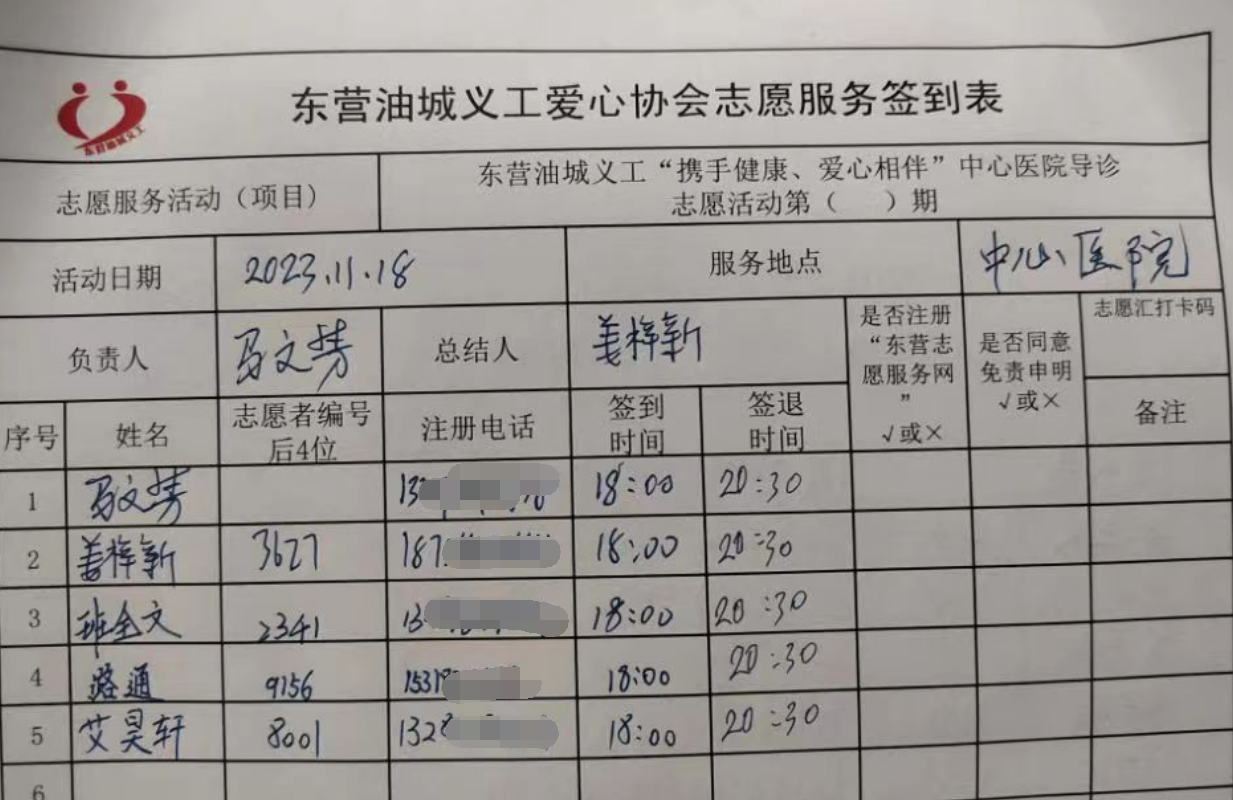 东营油城义工
东营油城义工爱心协会志愿服务签到表
志愿服务活动（项目）
东营油城义工“携手健康、爱心相伴”中心医院导诊
志愿活动第（ ）期
活动日期 2023.11.18 服务地点 中心医院
负责人 马文芳 总结人 姜梓新
是否注册
“东营志
愿服务网
”
√或×
是否同意
免责申明
√或×
志愿汇打卡码
备注
序号 姓名 志愿者编号
后4位
注册电话 签到
时间
签退
时间
1 马文芳 13 18:00 20:30
2 姜梓新 3627 187 18:00 20:30
3 班全文 2341 13 18:00 20:30
4 路通 9156 1531 18:00 20:30
5 艾昊轩 8001 1328 18:00 20:30
6